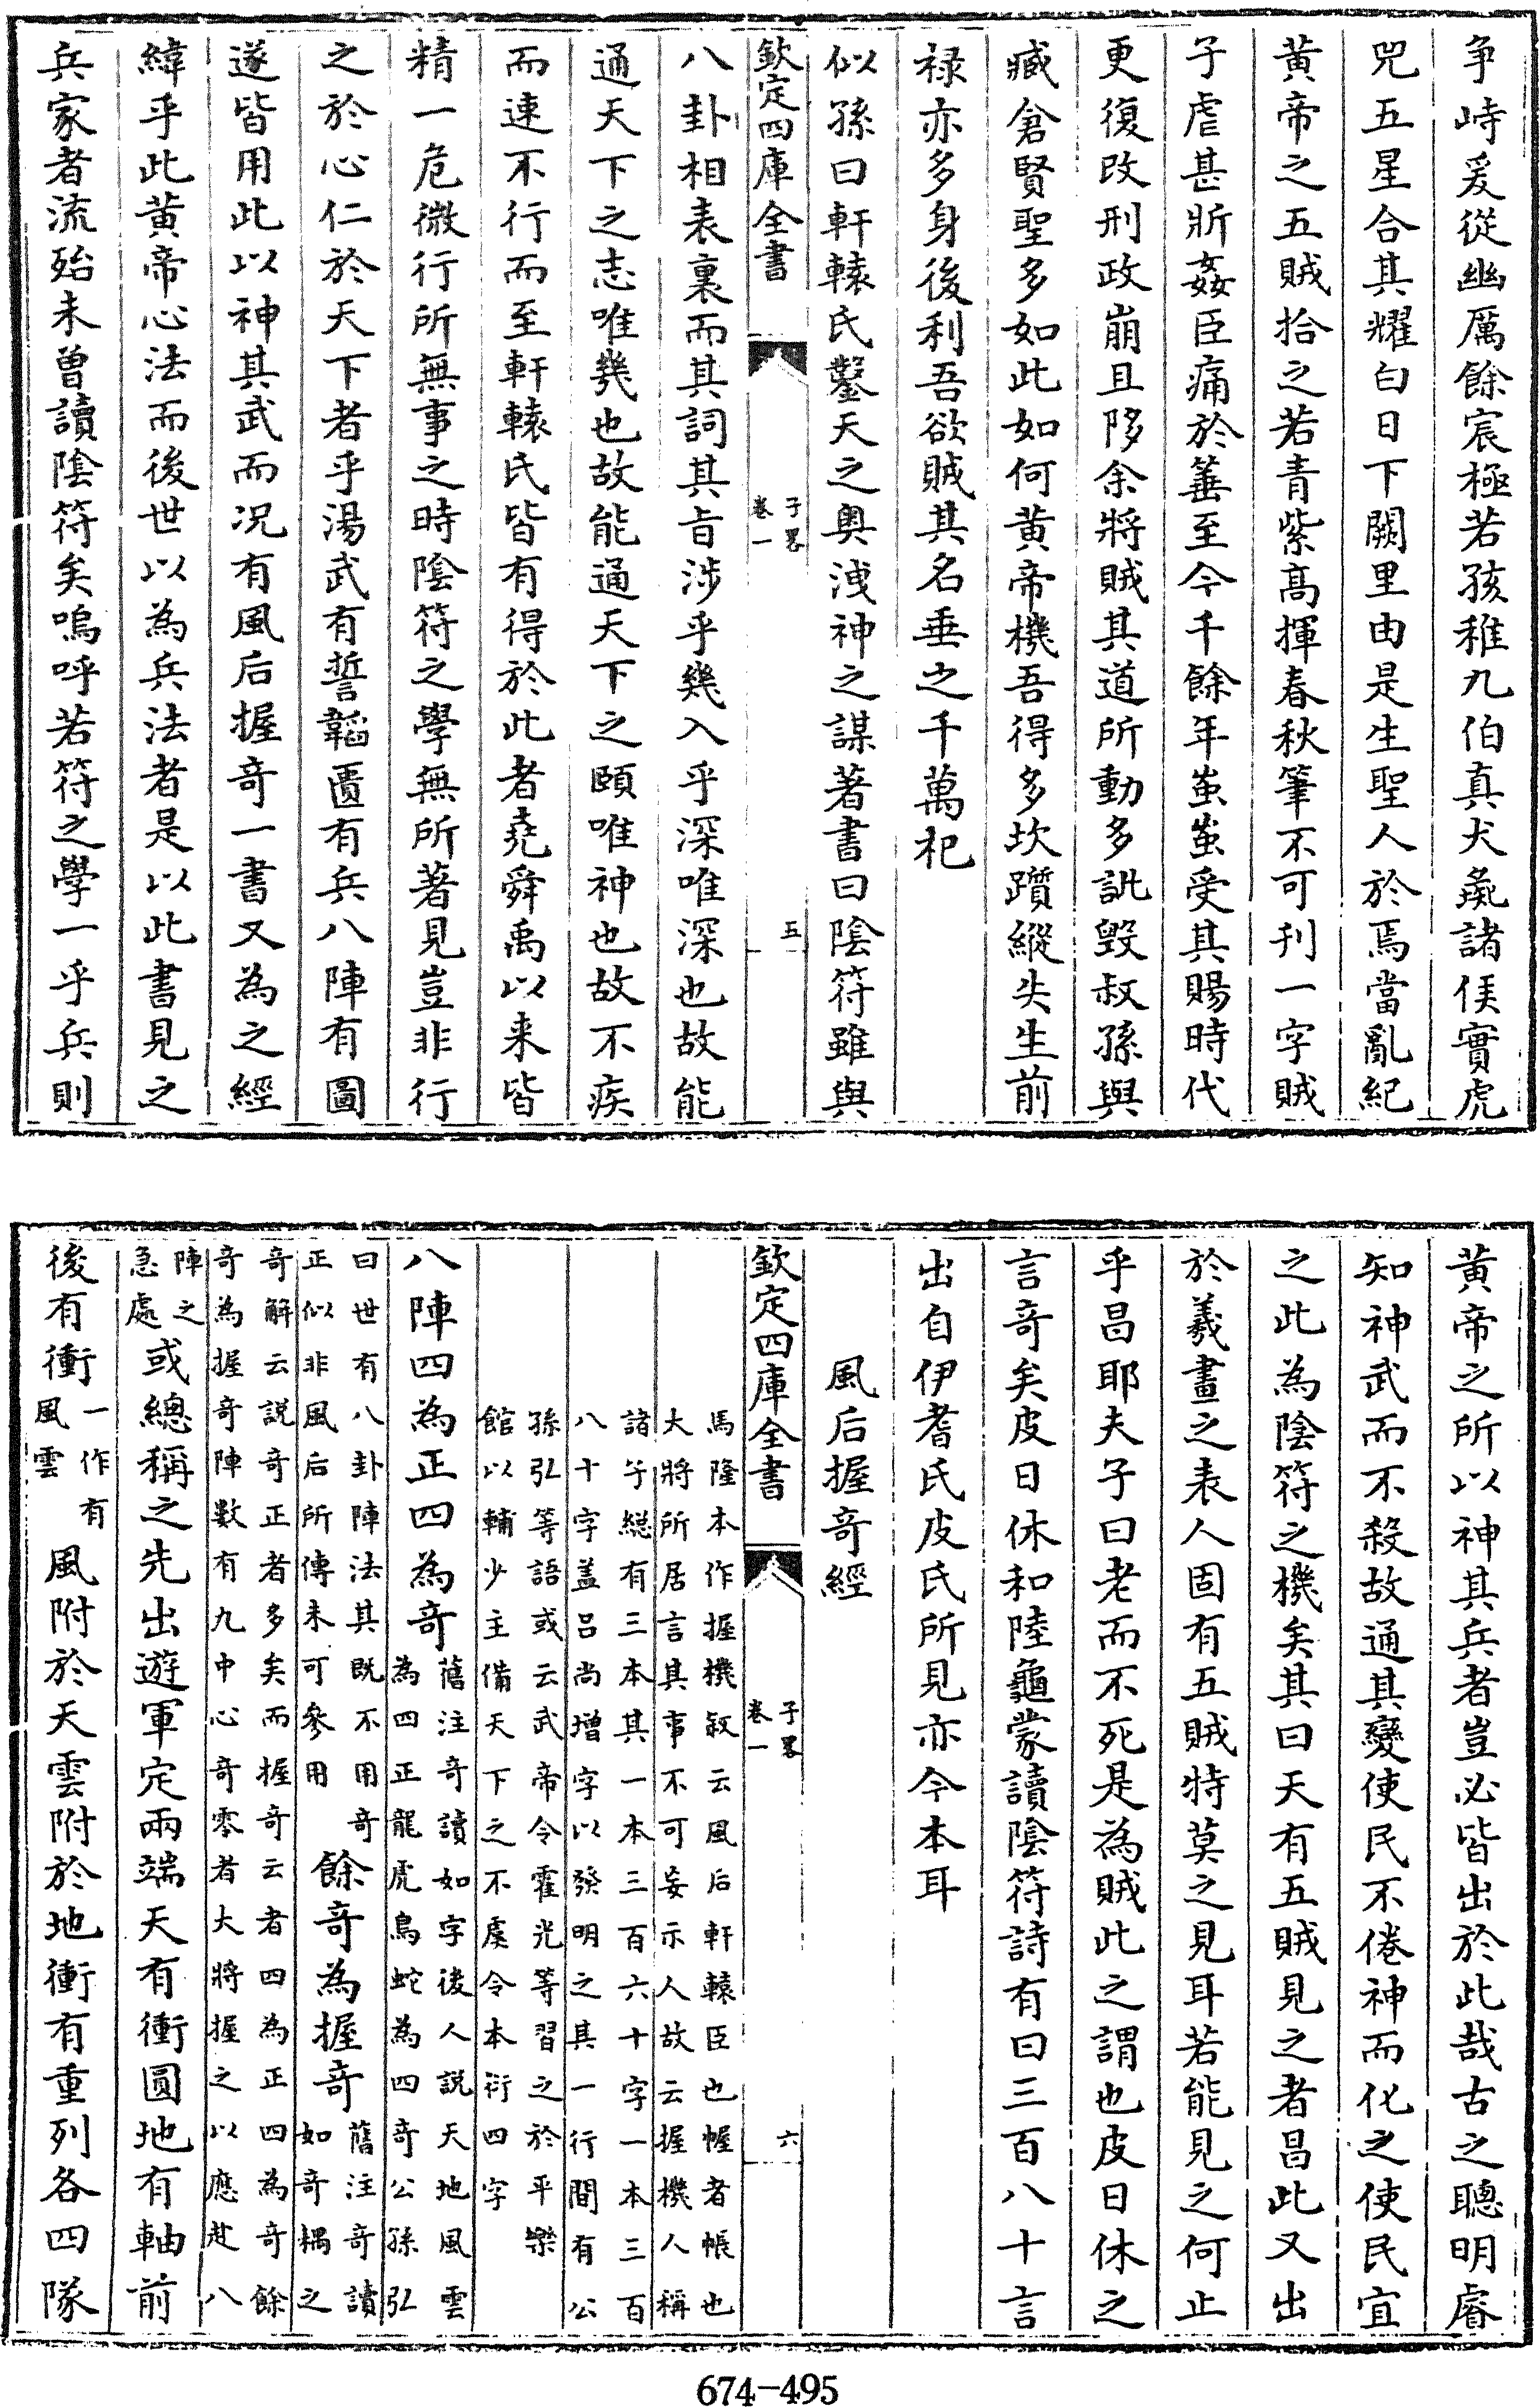 爭峙爰從幽厲餘宸極若孩稚九伯真犬彘諸侯實虎
兕五星合其耀白日下闕里由是生聖人於焉當亂紀
黃帝之五賊拾之若青紫高揮春秋筆不可刊一字賊
子虐甚斨姦臣痛於箠至今千餘年蚩蚩受其賜時代
更復改刑政崩且陊余將賊其道所動多訿毀叔孫與
臧倉賢聖多如此如何黃帝機吾得多坎躓縱失生前
祿亦多身後利吾欲賊其名垂之千萬祀
似孫曰軒轅氏鑿天之奧洩神之謀著書曰陰符雖與
欽定四庫全書 子畧 卷一 五
八卦相表裏而其詞其旨涉乎幾入乎深唯深也故能
通天下之志唯幾也故能通天下之賾唯神也故不疾
而速不行而至軒轅氏皆有得於此者堯舜禹以来皆
精一危微行所無事之時陰符之學無所著見豈非行
之於心仁於天下者乎湯武有誓韜匱有兵八陣有圖
遂皆用此以神其武而况有風后握奇一書又為之經
緯乎此黃帝心法而後世以為兵法者是以此書見之
兵家者流殆未曾讀陰符矣嗚呼若符之學一乎兵則
黃帝之所以神其兵者豈必皆出於此哉古之聰明睿
知神武而不殺故通其變使民不倦神而化之使民宜
之此為陰符之機矣其曰天有五賊見之者昌此又出
於羲畫之表人固有五賊特莫之見耳若能見之何止
乎昌耶夫子曰老而不死是為賊此之謂也皮日休之
言奇矣皮日休和陸龜蒙讀陰符詩有曰三百八十言
出自伊耆氏皮氏所見亦今本耳
風后握奇經
欽定四庫全書 子畧 卷一 六
馬隆本作握機敘云風后軒轅臣也幄者帳也
大將所居言其事不可妄示人故云握機人稱
諸家總有三本其一本三百六十字一本三百
八十字盖吕尚增字以發明之其一行間有公
孫弘等語或云武帝令霍光等習之於平樂
館以輔少主備天下之不虞今本衍四字
八陣四為正四為奇舊注奇讀如字後人說天地風雲為四正龍虎鳥蛇為四奇公孫弘
曰世有八卦陣法其既不用奇正似非風后所傳未可參用餘奇為握奇舊注奇讀如奇耦之
奇解云說奇正者多矣而握奇云者四為正四為奇餘
奇為握奇陣數有九中心奇零者大將握之以應赴八
陣之急處或總稱之先出遊軍定兩端天有衝圓地有軸前
後有衝一作有風雲風附於天雲附於地衝有重列各四隊
674-495